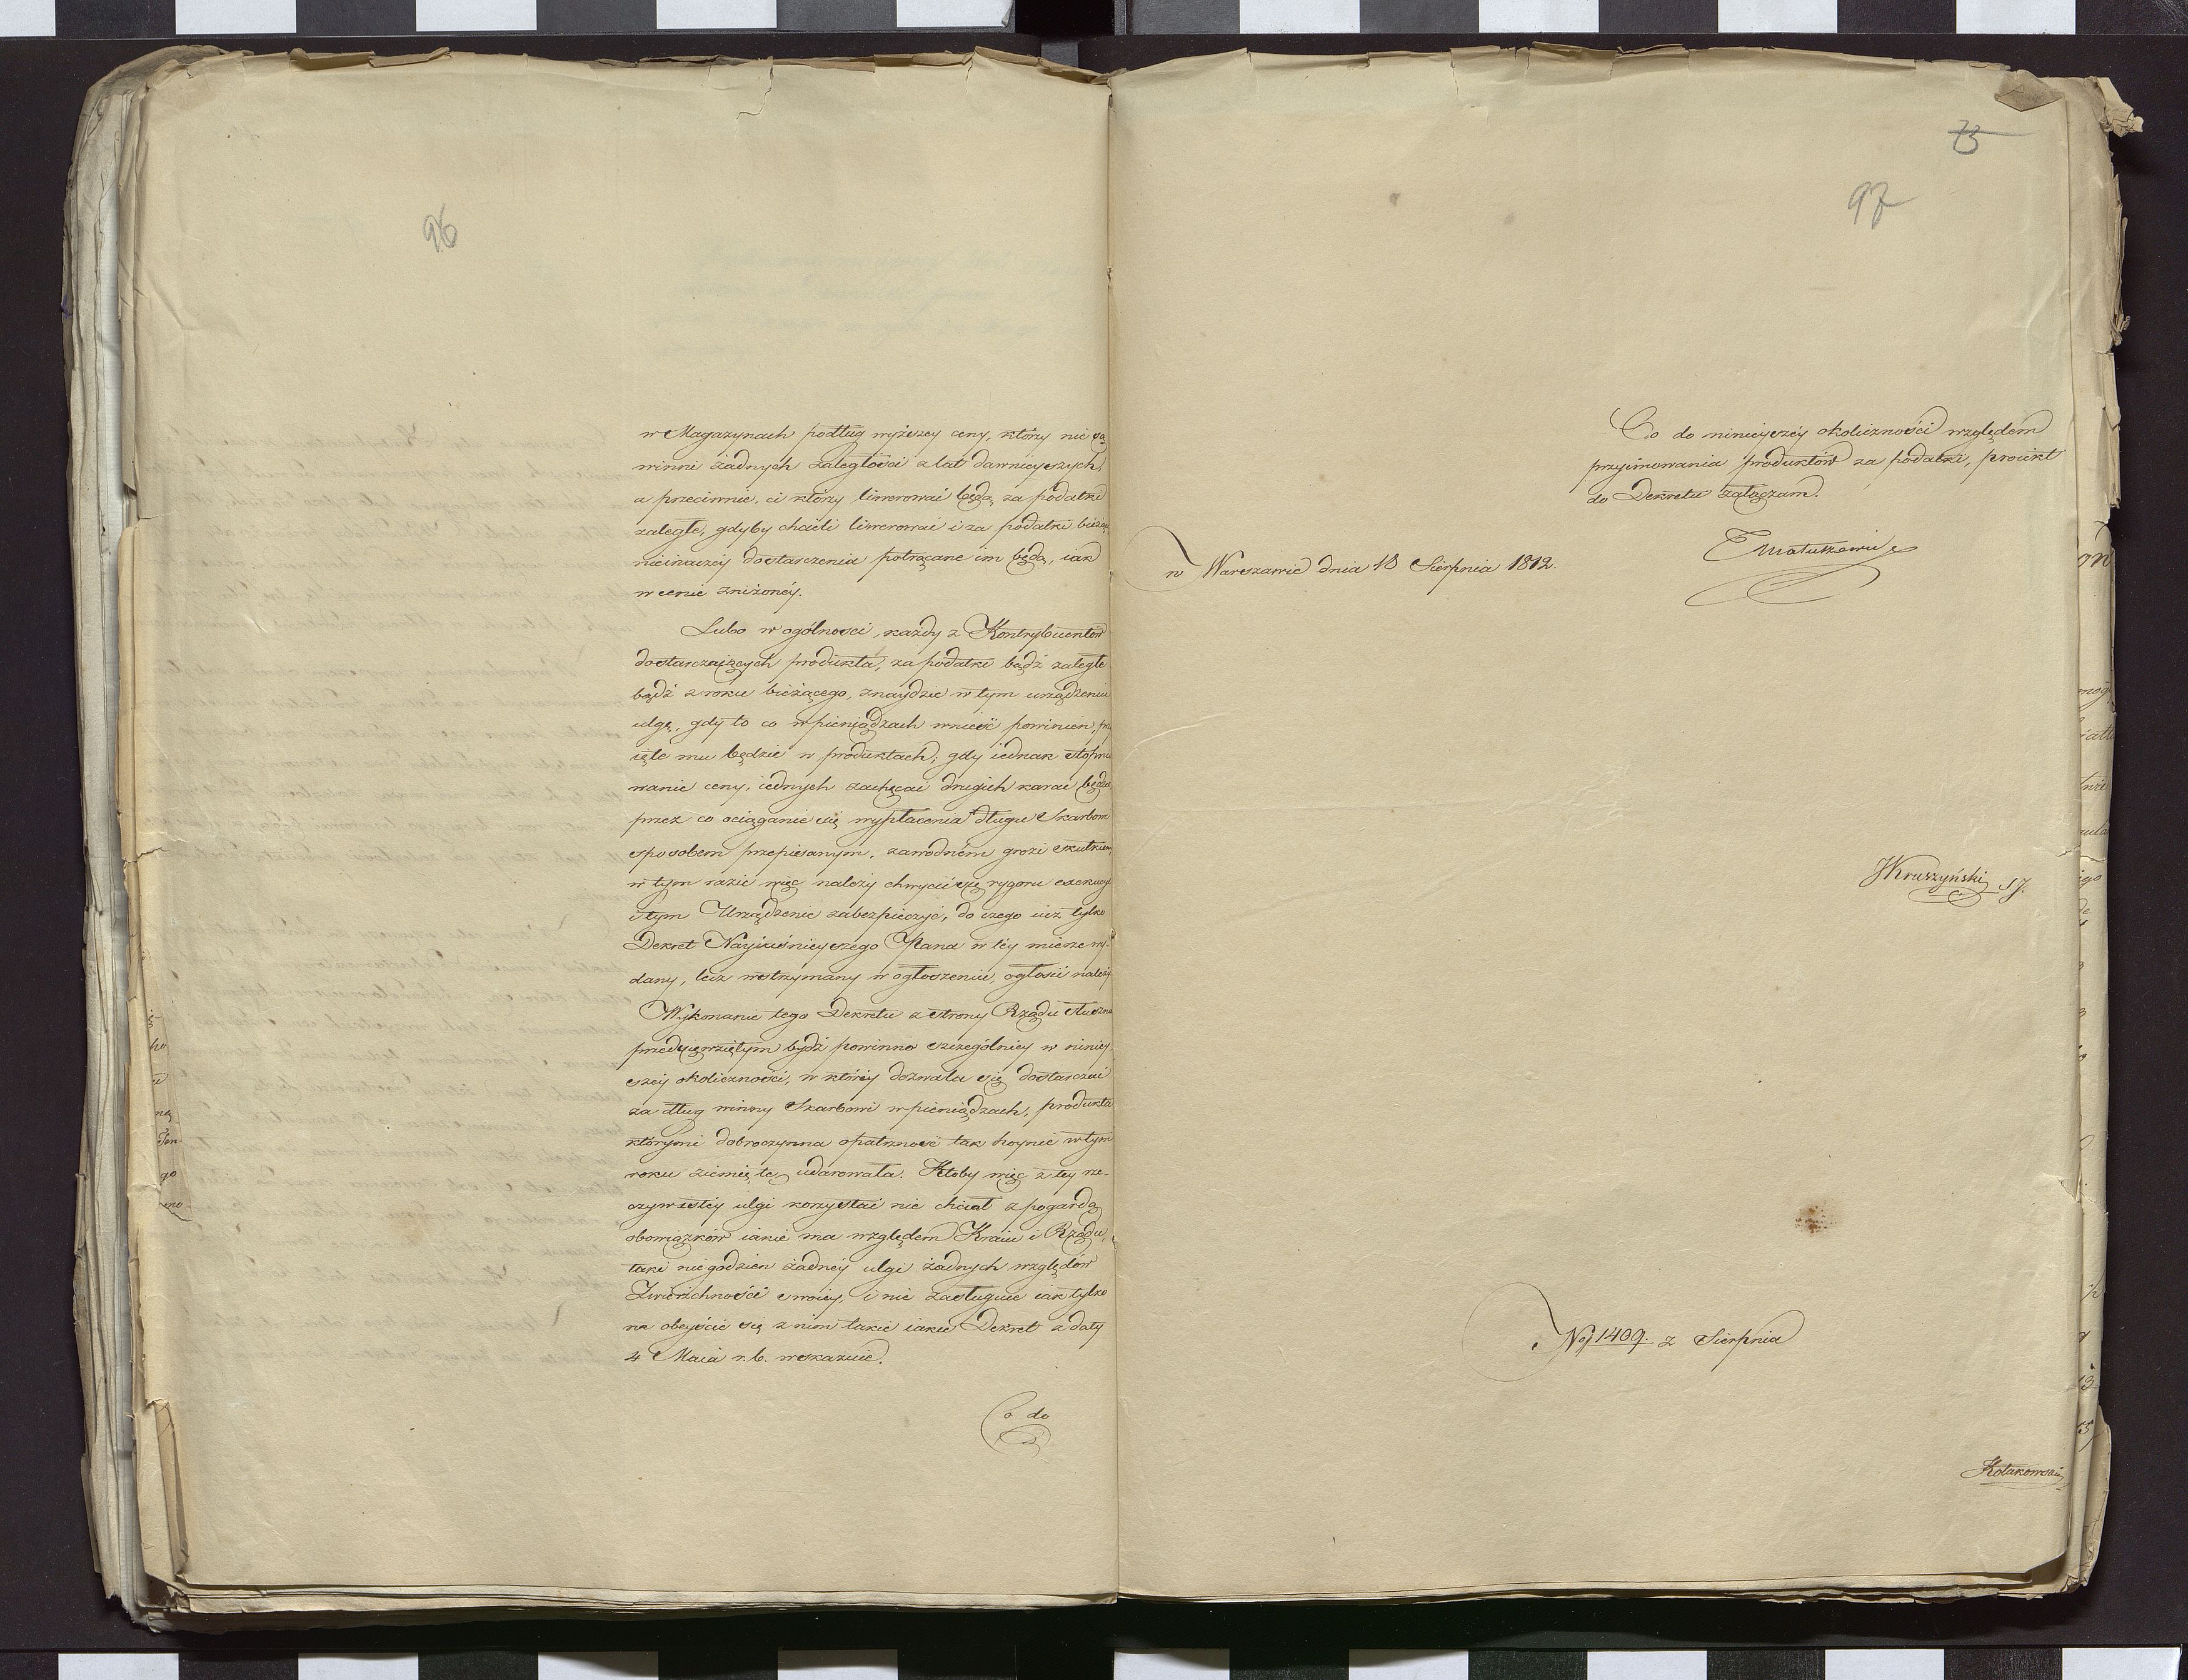 96
w Magazynach podług wyższey ceny, którzy nie są
winni żadnych zaległości z lat dawnieyszych,
a przeciwnie, ci którzy liwerować będą za podatki
zaległe, gdyby chcieli liwerować i za podatki bieżą
nieinaczéy dostarczenia potrącane im będą, iak
w cenie zniżonéy.
Lubo w ogólności, każdy z Kontrybuentów
dostarczaiących produkta, za podatki bądź zaległe
bądź z roku bieżącego, znaydzie w tym urządzeniu
ulgę, gdy to co w pieniądzach wnieść powinien, prz
ięte mu będzie w produktach; gdy iednak stopnio
wanie ceny, iednych zachęcać drugich karać będzie
przez co ociąganie się wypłacenia długu Skarbow
sposobem przepisanym, zawodném grozi skutkiem,
w tym razie więc należy chwycić się rygoru exekucyi
i tym Urządzenie zabezpieczyć, do czego iuż tylko
Dekret Nayiaśnieyszego Pana w téy mierze wy-
dany, lecz wstrzymany w ogłoszeniu, ogłosić należy
Wykonanie tego Dekretu z strony Rządu słuszni
przedsięwziętym bydź powinno szczególniey w niniey-
széy okoliczności, w któréy dozwala się dostarczać
za dług winny Skarbowi w pieniądzach, produkta
któremi dobroczynna opatrzność tak hoynie w tym
roku ziemię tę udarowała. Ktoby więc z tey rze-
czywistéy ulgi korzystać nie chciał z pogardą
obowiązków iakie ma względem Kraiu i Rządu,
taki niegodzien żadnéy ulgi żadnych względów
Zwierzchności swoiey, i nie zasługuie iak tylko
na obeyście się z nim takie iakie Dekret z daty
4 Maia r. b. wskazuie.
Co do
73
97
Co do ninieyszéy okoliczności względem
przyimowania produktów za podatki, proiekt
do Dekretu załączam.
TMatuszewic
w Warszawie dnia 18 Sierpnia 1812.
JKruszyński SJ.
No 1409. z Sierpnia
Kołakowski